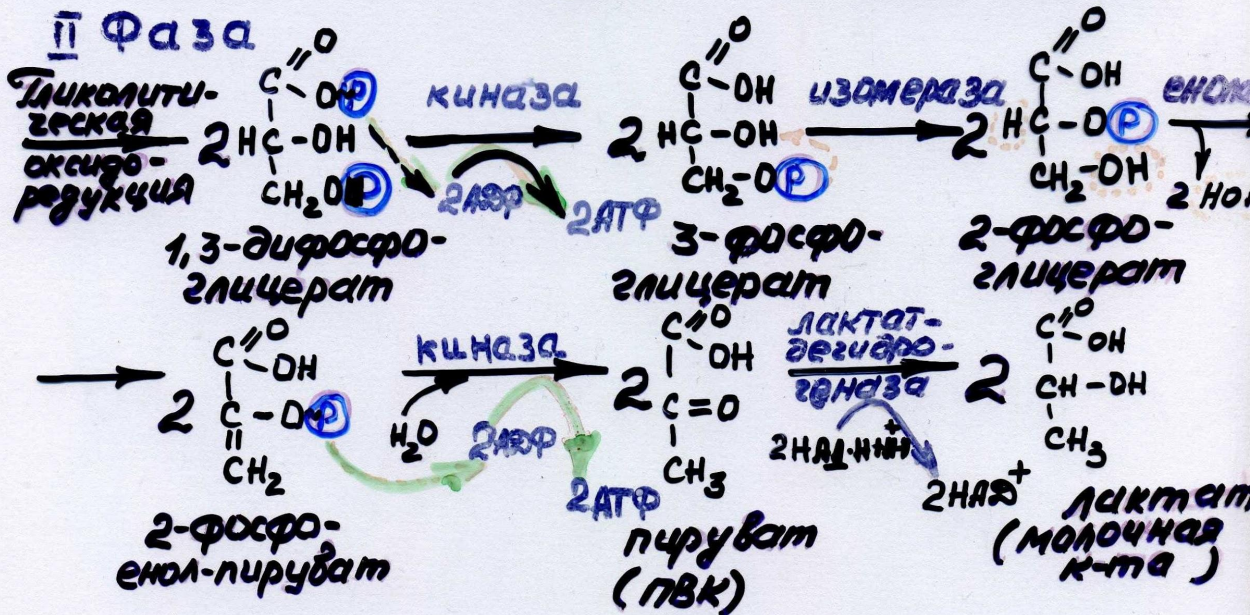 II Фаза
Гликолити-
ческая
оксидо-
редукция
2
C
O
OⓅ
HC-OH
CH₂OⓅ
1,3-дифосфо-
глицерат
киназа
2АДФ
2АТФ
2
C
O
OH
HC-OH
CH₂-OⓅ
3-фосфо-
глицерат
изомераза
2
C
O
OH
HC-OⓅ
CH₂-OH
2-фосфо-
глицерат
2
C
O
OH
C-OⓅ
CH₂
2-фосфо-
енол-пируват
киназа
H₂O
2АДФ
2АТФ
2
C
O
OH
C=O
CH₃
пируват
(ПВК)
лактат-
дегидро-
геназа
2НАД⁺
2
C
O
OH
CH-OH
CH₃
лактат
(молочная
к-та)